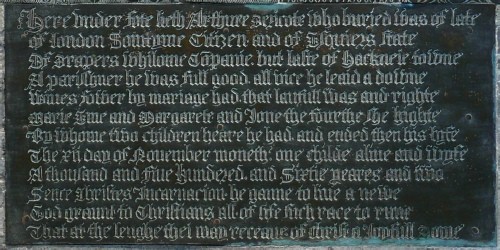 Here under fote lieth Arthure Dericote who buried was of late
of london Somtyme Citizen and of Esquiers state
Of Drapers whilome Copanie but laste of Hackneie towne
A parishner he was full good all vice he leaid a downe
wives fower by mariage had that laufull was and righte
Marie Eme and Margarete and Jone the fourthe she highte
By whome two children heare he had and ended then his lyfe
The xii day of November moneth one childe alive and wyfe
A thousand and Five Hundered and Sixtie yeares and two
Sence Christes Incarnacion he ganne to live a newe
God graunt to Christians all of life such race to
That at the lengthe thei may receave of Christ a Joyfull